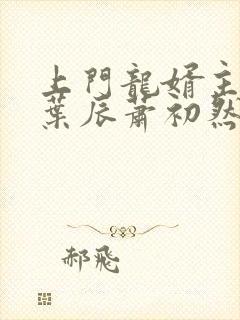 上門龍婿主
葉辰蕭初然
郝飛